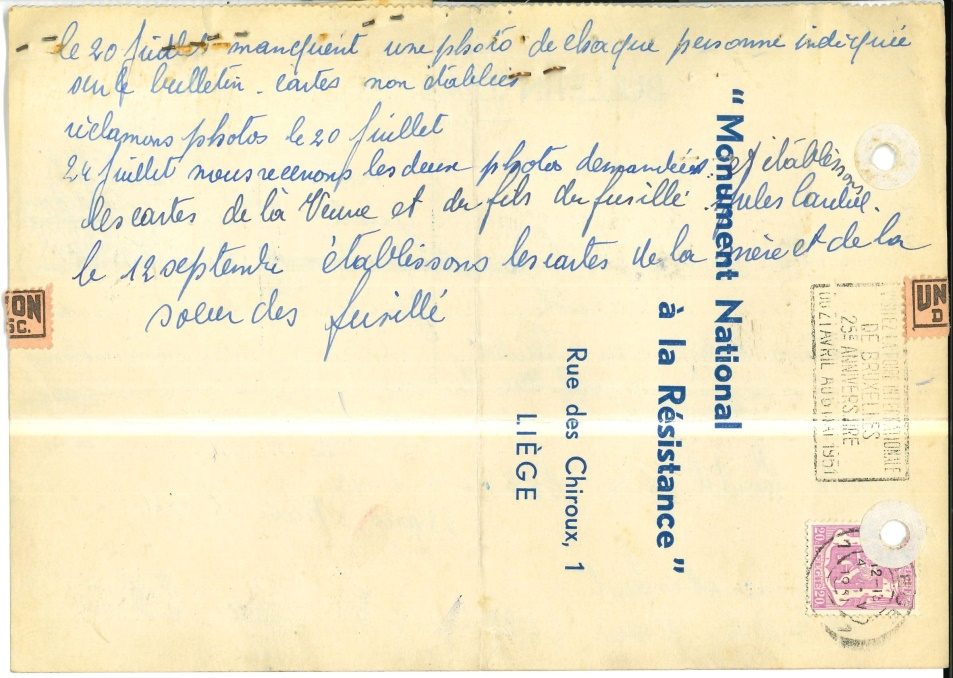 le 20 Juillet manquent une photo de chaque personne indiquée
sur le bulletin - cartes non établies
réclamons photos le 20 Juillet
24 Juillet nous recevons les deux photos demandées et établissons
les cartes de la Veuve et du fils du fusillé Jules
le 12 septembre établissons les cartes de la mère et de la
soeur des fusillé
"Monument National
à la Résistance"
Rue des Chiroux, 1
LIÈGE
ON
SC.
UN
D
LA FOIRE INTERNATIONALE
DE BRUXELLES
25E ANNIVERSAIRE
DU 21 AVRIL AU 6 MAI 1951
20
20
12-13
1951